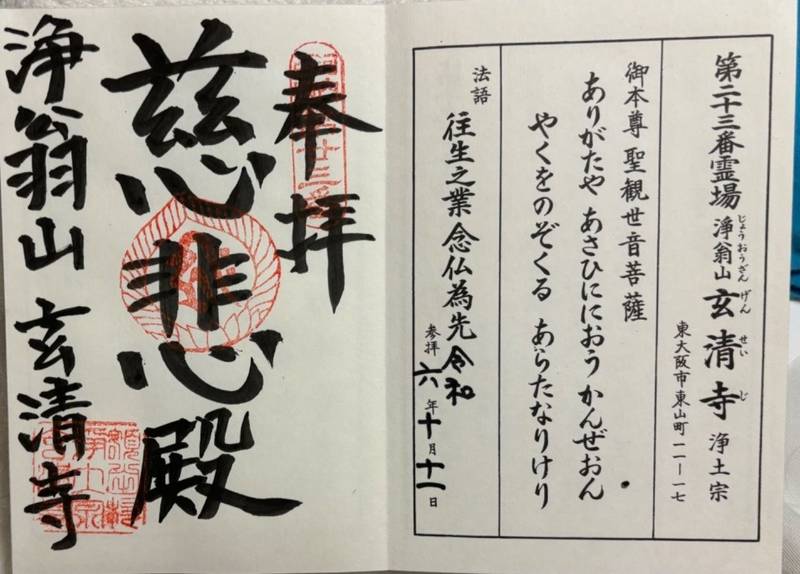 第二十三番霊場 浄翁山 玄清寺 浄土宗
じょうおうざん げんせいじ
東大阪市東山町一一-一七
御本尊 聖観世音菩薩
ありがたや あさひににおう かんぜおん
やくをのぞくる あらたなりけり
法語 往生之業 念仏為先
参拝 令和六年十月十一日
奉拝
慈悲殿
浄翁山 玄清寺